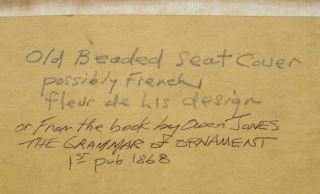 Old Beaded Seat Cover
possibly French
fleur de lis design
or From the book by Owen JONES
THE GRAMMAR of ORNAMENT
1st pub 1868